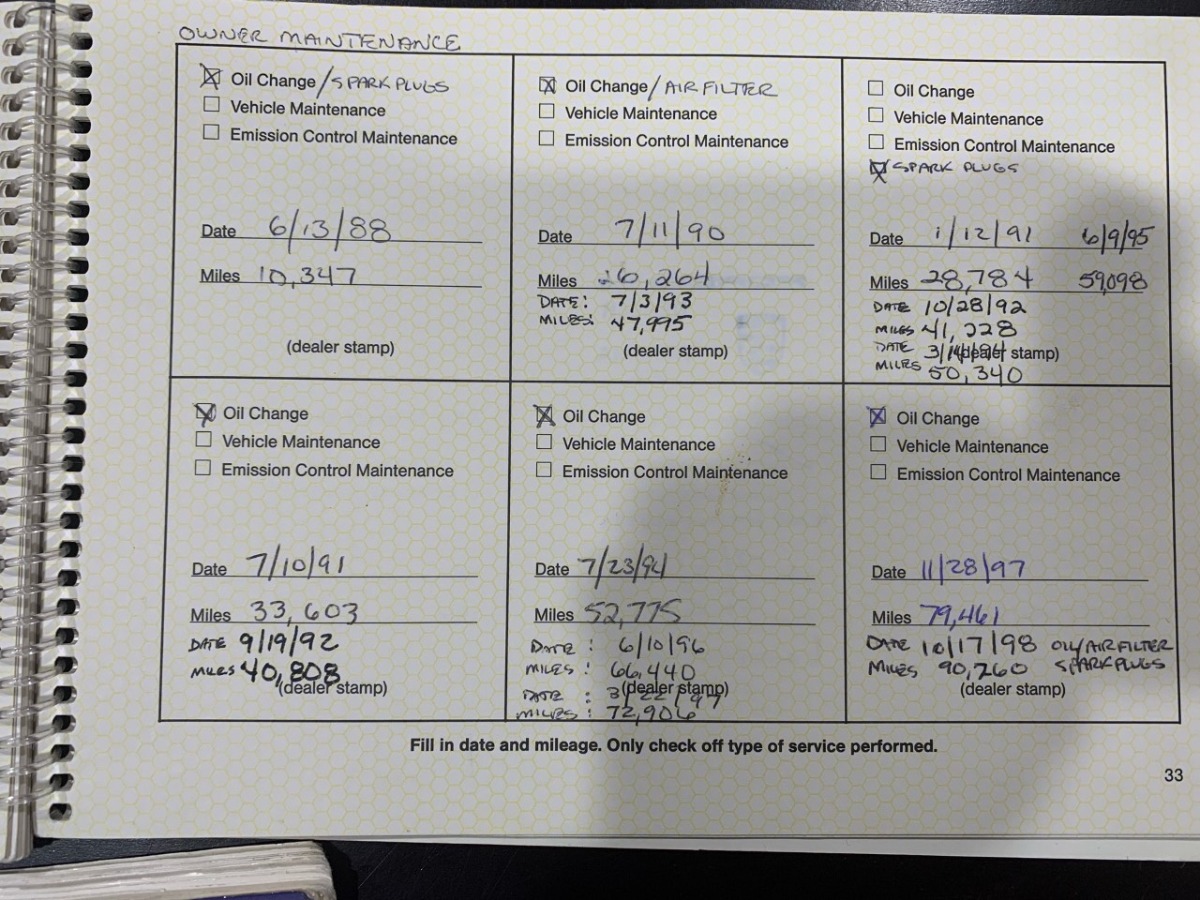 OWNER MAINTENANCE
Oil Change/SPARK PLUGS
Vehicle Maintenance
Emission Control Maintenance
Date 6/13/88
Miles 10,347
(dealer stamp)
Oil Change/AIR FILTER
Vehicle Maintenance
Emission Control Maintenance
Date 7/11/90
Miles 26,264
DATE: 7/3/93
MILES: 47,995
(dealer stamp)
Oil Change
Vehicle Maintenance
Emission Control Maintenance
SPARK PLUGS
Date 1/12/91 6/9/95
Miles 28,784 59,098
DATE 10/28/92
MILES 41,228
DATE 3/14/94 (dealer stamp)
MILES 50,340
Oil Change
Vehicle Maintenance
Emission Control Maintenance
Date 7/10/91
Miles 33,603
DATE 9/19/92
MILES 40,808
(dealer stamp)
Oil Change
Vehicle Maintenance
Emission Control Maintenance
Date 7/23/94
Miles 52,775
DATE: 6/10/96
MILES: 66,440
DATE: 3/22/97 (dealer stamp)
MILES: 72,906
Oil Change
Vehicle Maintenance
Emission Control Maintenance
Date 11/28/97
Miles 79,461
DATE 10/17/98 OIL/AIR FILTER
MILES 90,260 SPARK PLUGS
(dealer stamp)
Fill in date and mileage. Only check off type of service performed.
33